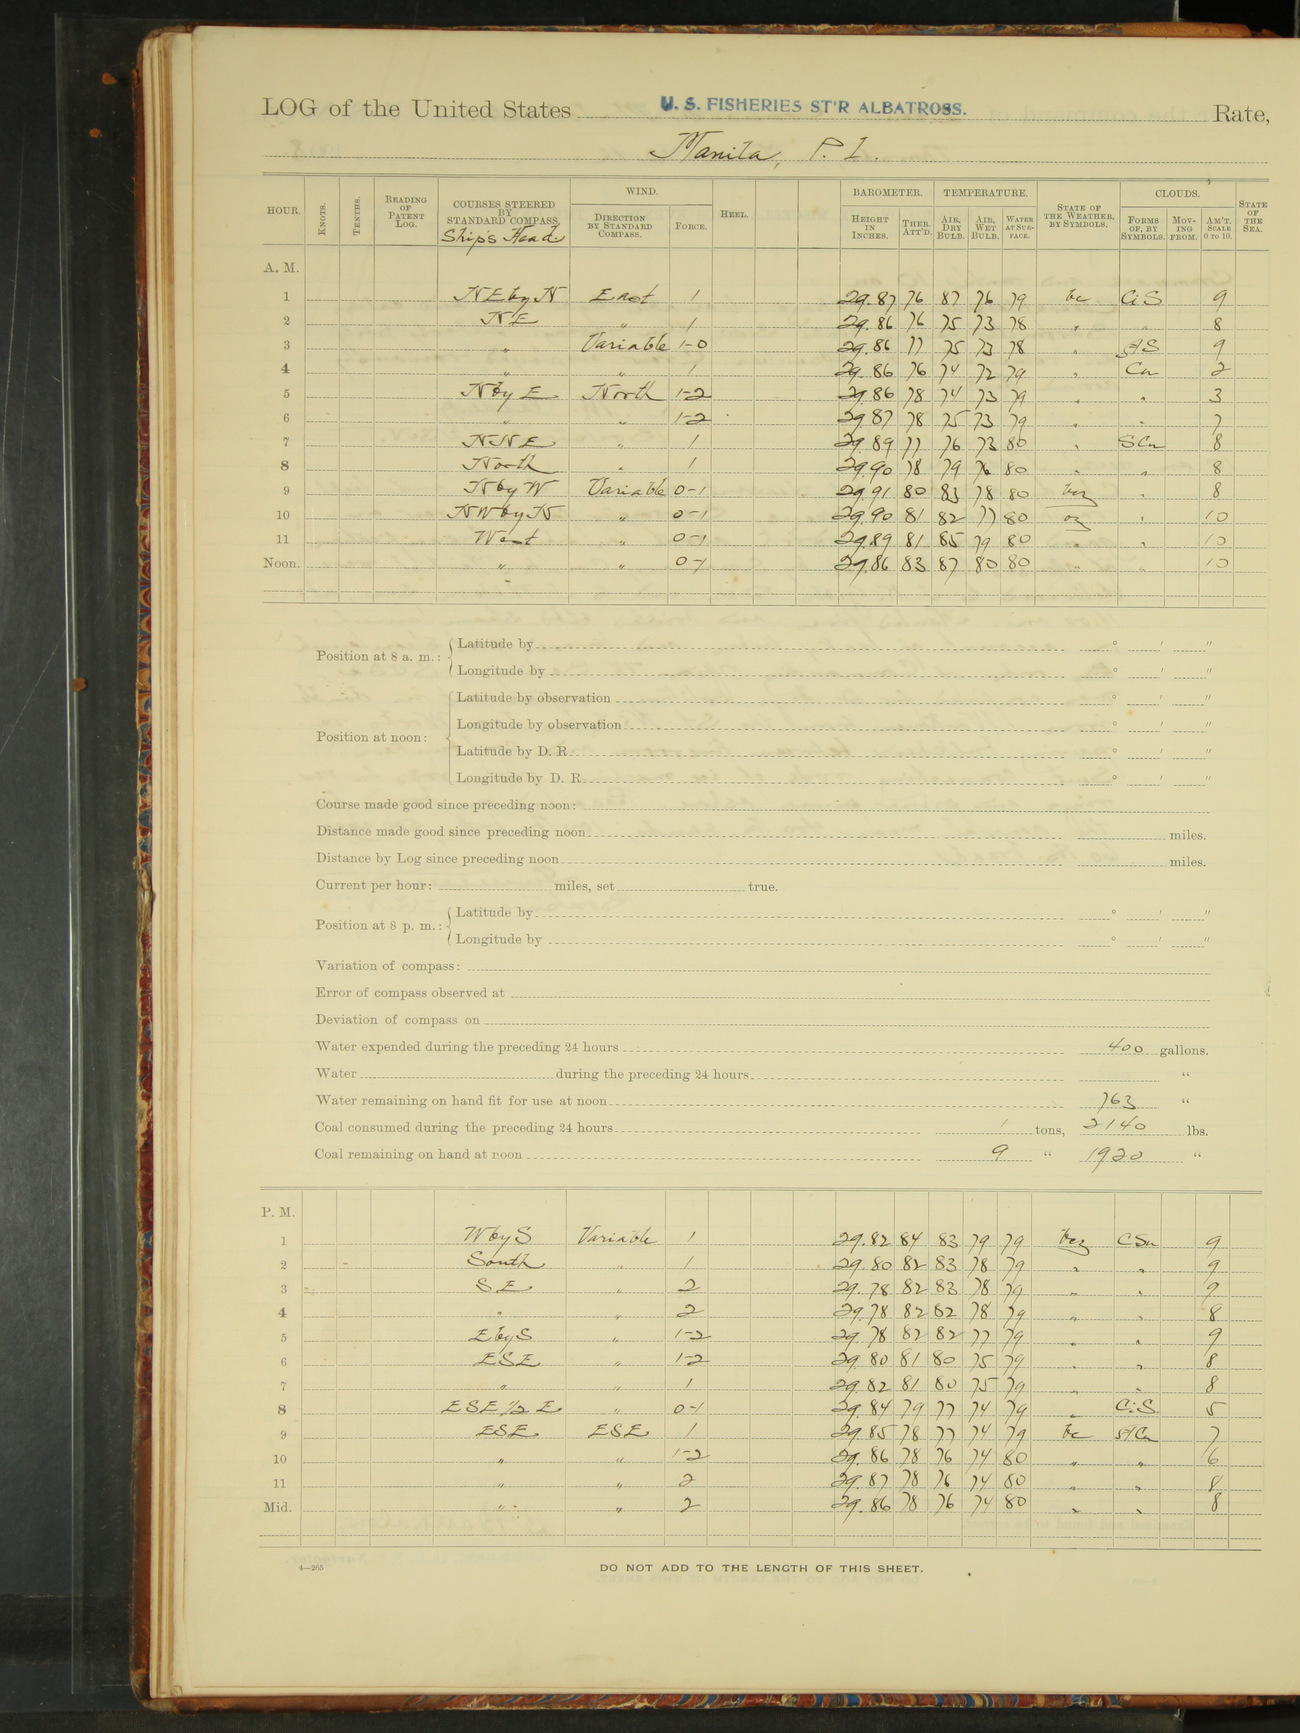 LOG of the United States U. S. FISHERIES ST'R ALBATROSS. Rate,
Manila, P. I.
HOUR. KNOTS. TENTHS. READING OF PATENT LOG. COURSES STEERED BY STANDARD COMPASS. Ship's Head. WIND. DIRECTION BY STANDARD COMPASS. FORCE. HEEL. BAROMETER. HEIGHT IN INCHES. THER. ATT'D. TEMPERATURE. AIR, DRY BULB. AIR, WET BULB. WATER AT SURFACE. STATE OF THE WEATHER, BY SYMBOLS. CLOUDS. FORMS OF, BY SYMBOLS. MOVING FROM. AM'T. SCALE 0 TO 10. STATE OF THE SEA.
A. M.
1 NE by N East 1 29.87 76 87 76 79 bc Ci S 9
2 NE " 1 29.86 76 75 73 78 " " 8
3 " Variable 1-0 29.86 77 75 73 78 " 9
4 " " 1 29.86 76 74 72 79 " Cu 2
5 N by E North 1-2 29.86 78 74 73 79 " " 3
6 " " 1-2 29.87 78 75 73 79 " " 7
7 NNE " 1 29.89 77 76 73 80 " S Cu 8
8 North " 1 29.90 78 79 76 80 " " 8
9 N by W Variable 0-1 29.91 80 83 78 80 bcz " 8
10 NW by N " 0-1 29.90 81 82 77 80 oz " 10
11 West " 0-1 29.89 81 85 79 80 " " 10
Noon. " " 0-1 29.86 83 87 80 80 " " 10
Position at 8 a. m.: Latitude by ° ' "
Longitude by ° ' "
Position at noon: Latitude by observation ° ' "
Longitude by observation ° ' "
Latitude by D. R. ° ' "
Longitude by D. R. ° ' "
Course made good since preceding noon:
Distance made good since preceding noon miles.
Distance by Log since preceding noon miles.
Current per hour: miles, set true.
Position at 8 p. m.: Latitude by ° ' "
Longitude by ° ' "
Variation of compass:
Error of compass observed at
Deviation of compass on
Water expended during the preceding 24 hours 400 gallons.
Water during the preceding 24 hours "
Water remaining on hand fit for use at noon 763 "
Coal consumed during the preceding 24 hours 1 tons, 2140 lbs.
Coal remaining on hand at noon 9 " 1920 "
P. M.
1 W by S Variable 1 29.82 84 83 79 79 bcz 9
2 South " 1 29.80 82 83 78 79 " " 9
3 SE " 2 29.78 82 83 78 79 " " 9
4 " " 2 29.78 82 82 78 79 " " 8
5 E by S " 1-2 29.78 82 82 77 79 " " 9
6 ESE " 1-2 29.80 81 80 75 79 " " 8
7 " " 1 29.82 81 80 75 79 " " 8
8 ESE 1/2 E " 0-1 29.84 79 77 74 79 " Ci S. 5
9 ESE ESE 1 29.85 78 77 74 79 bc 7
10 " " 1-2 29.86 78 76 74 80 " " 6
11 " " 2 29.87 78 76 74 80 " " 8
Mid. " " 2 29.86 78 76 74 80 " " 8
4—265 DO NOT ADD TO THE LENGTH OF THIS SHEET.